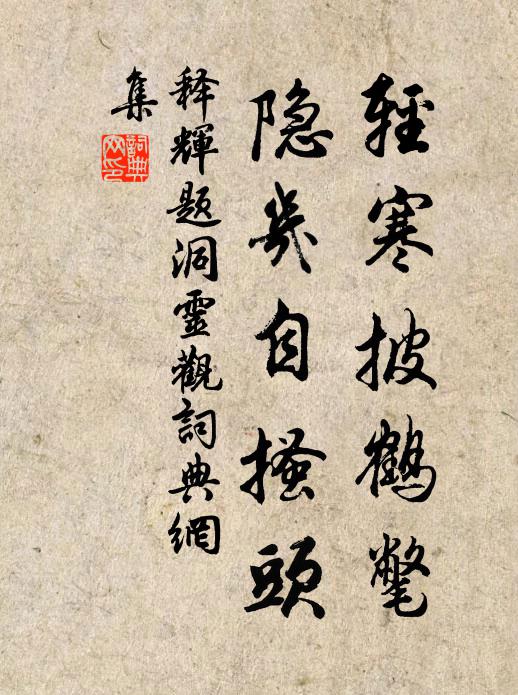 輕寒披鶴氅
隐几自搔頭
释輝题洞靈觀詞典網
集
詞典
网印